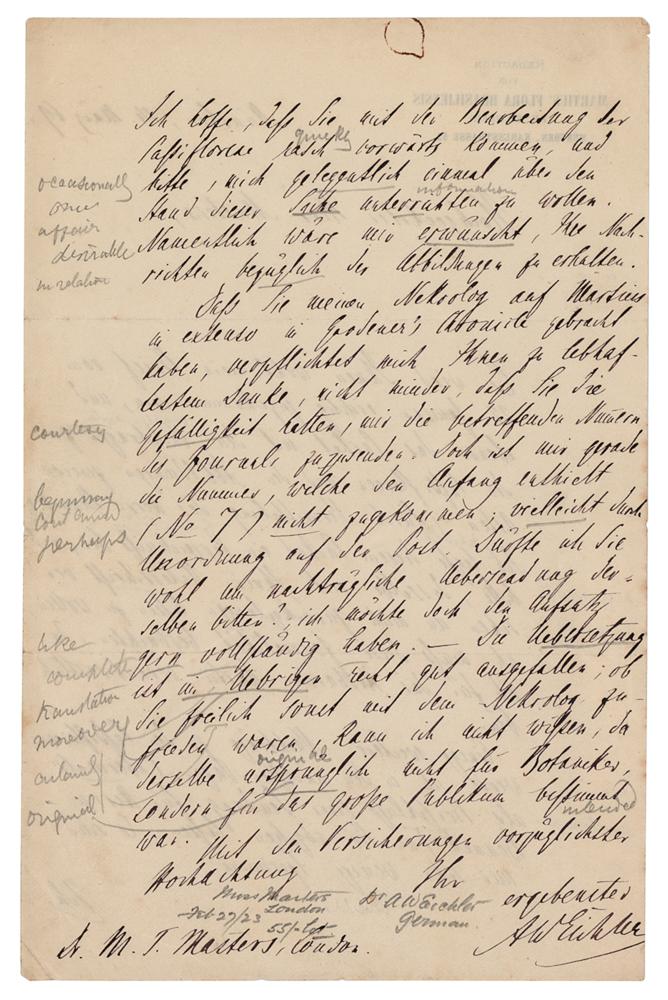 Ich hoffe, daß Sie mit der Bearbeitung der
quickly
Passifloreae rasch vorwärts kommen, und
occasionally
bitte, mich gelegentlich einmal über den
once
information
Stand dieser Sache unterrichten zu wollen.
affair
Namentlich wäre mir erwünscht, Ihre Nach-
desirable
in relation
richten bezüglich der Abbildungen zu erhalten.
Daß Sie meinen Nekrolog auf Martius
in extenso in Gardener's Chronicle gebracht
haben, verpflichtet mich Ihnen zu lebhaf-
testem Danke, nicht minder, daß Sie die
courtesy
Gefälligkeit hatten, mir die betreffenden Numern
des Journals zuzusenden. Doch ist mir gerade
beginning
die Nummer, welche den Anfang enthielt
(No 7) nicht zugekommen; vielleicht durch
perhaps
Unordnung auf der Post. Dürfte ich Sie
wohl um nachträgliche Uebersendung der-
selben bitten?, ich möchte doch den Aufsatz
like
gern vollständig haben. — Die Uebersetzung
complete
ist im Uebrigen recht gut ausgefallen; ob
translation
Sie freilich sonst mit dem Nekrolog zu-
moreover
frieden waren, kann ich nicht wissen, da
original
certainly
derselbe ursprünglich nicht für Botaniker,
original
sondern für das große Publikum bestimmt
intended
war.
Mit den Versicherungen vorzüglichster
Hochachtung Ihr
ergebenster
Miss Masters
London
Feb 27/23
55/- Lot
Dr A W Eichler
German
A W Eichler
Dr. M. T. Masters, London.